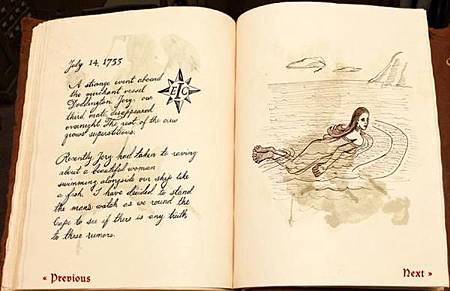 July 14, 1755
A strange event aboard
the merchant vessel
Doddington Jory, our
third mate disappeared
overnight The rest of the crew
grows superstitious.
Recently Jory had taken to raving
about a beautiful woman
swimming alongside our ship like
a fish. I have decided to stand
the man's watch as we round the
Cape to see if there is any truth
to these rumors.
E I C
« Previous
Next »